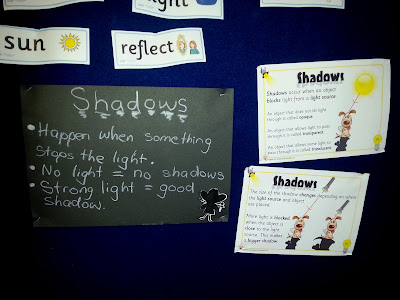 sun
reflect
Shadows
• Happen when something
stops the light.
• No light = no shadows
• Strong light = good
shadow.
Shadows
Shadows occur when an object
blocks light from a light source.
An object that does not let light
through is called opaque
An object that allows light to pass
through it is called transparent
An object that allows some light to
pass through it is called translucent
Shadows
The size of the shadow changes depending on where
the light source and object
are placed.
More light is blocked
when the object is
close to the light
source. This makes
a bigger shadow.